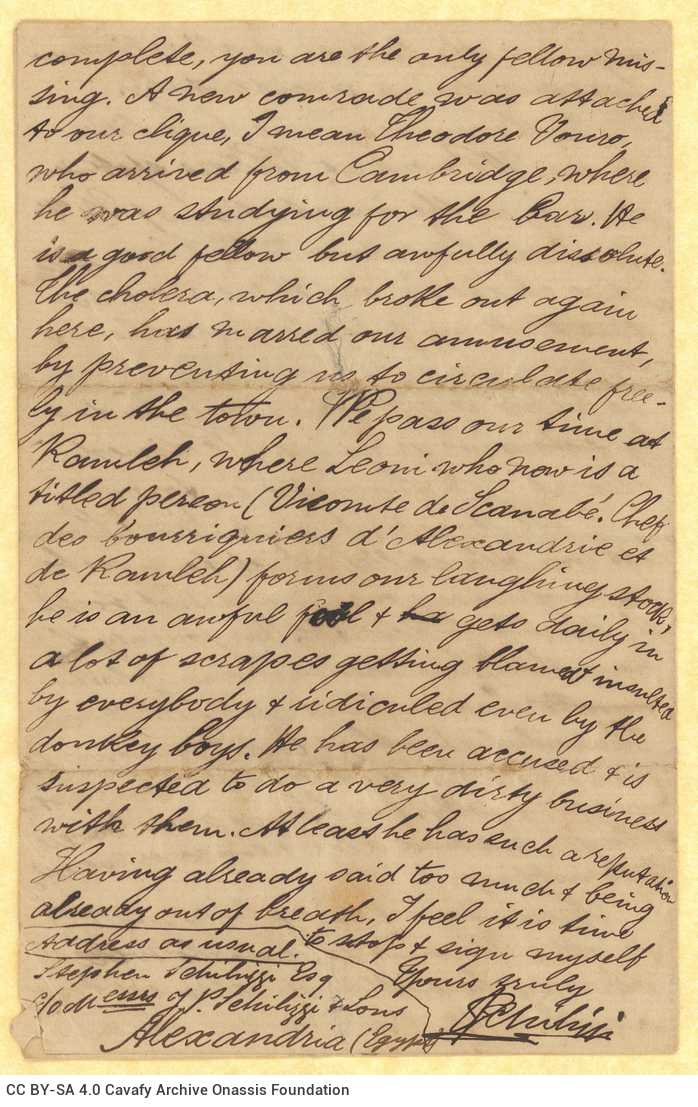 complete, you are the only fellow mis-
sing. A new comrade was attached
to our clique, I mean Theodore Vouro,
who arrived from Cambridge, where
he was studying for the bar. He
is a good fellow but awfully dissolute.
The cholera, which broke out again
here, has marred our amusement,
by preventing us to circulate free-
ly in the town. We pass our time at
Ramleh, where Leoni who now is a
titled person (Vicomte de Scanabé. Chef
des bourriquiers d'Alexandrie et
de Ramleh) forms our laughing stock;
he is an awful fool & gets daily in
a lot of scrapes getting blamed & insulted
by everybody & ridiculed even by the
donkey boys. He has been accused & is
suspected to do a very dirty business
with them. At least he has such a reputation
Having already said too much & being
already out of breath, I feel it is time
to stop & sign myself
Yours truly
Schilizzi
Address as usual.
Stephen Schilizzi Esq
c/o Messrs J. P. Schilizzi & Sons
Alexandria (Egypt)
CC BY-SA 4.0 Cavafy Archive Onassis Foundation